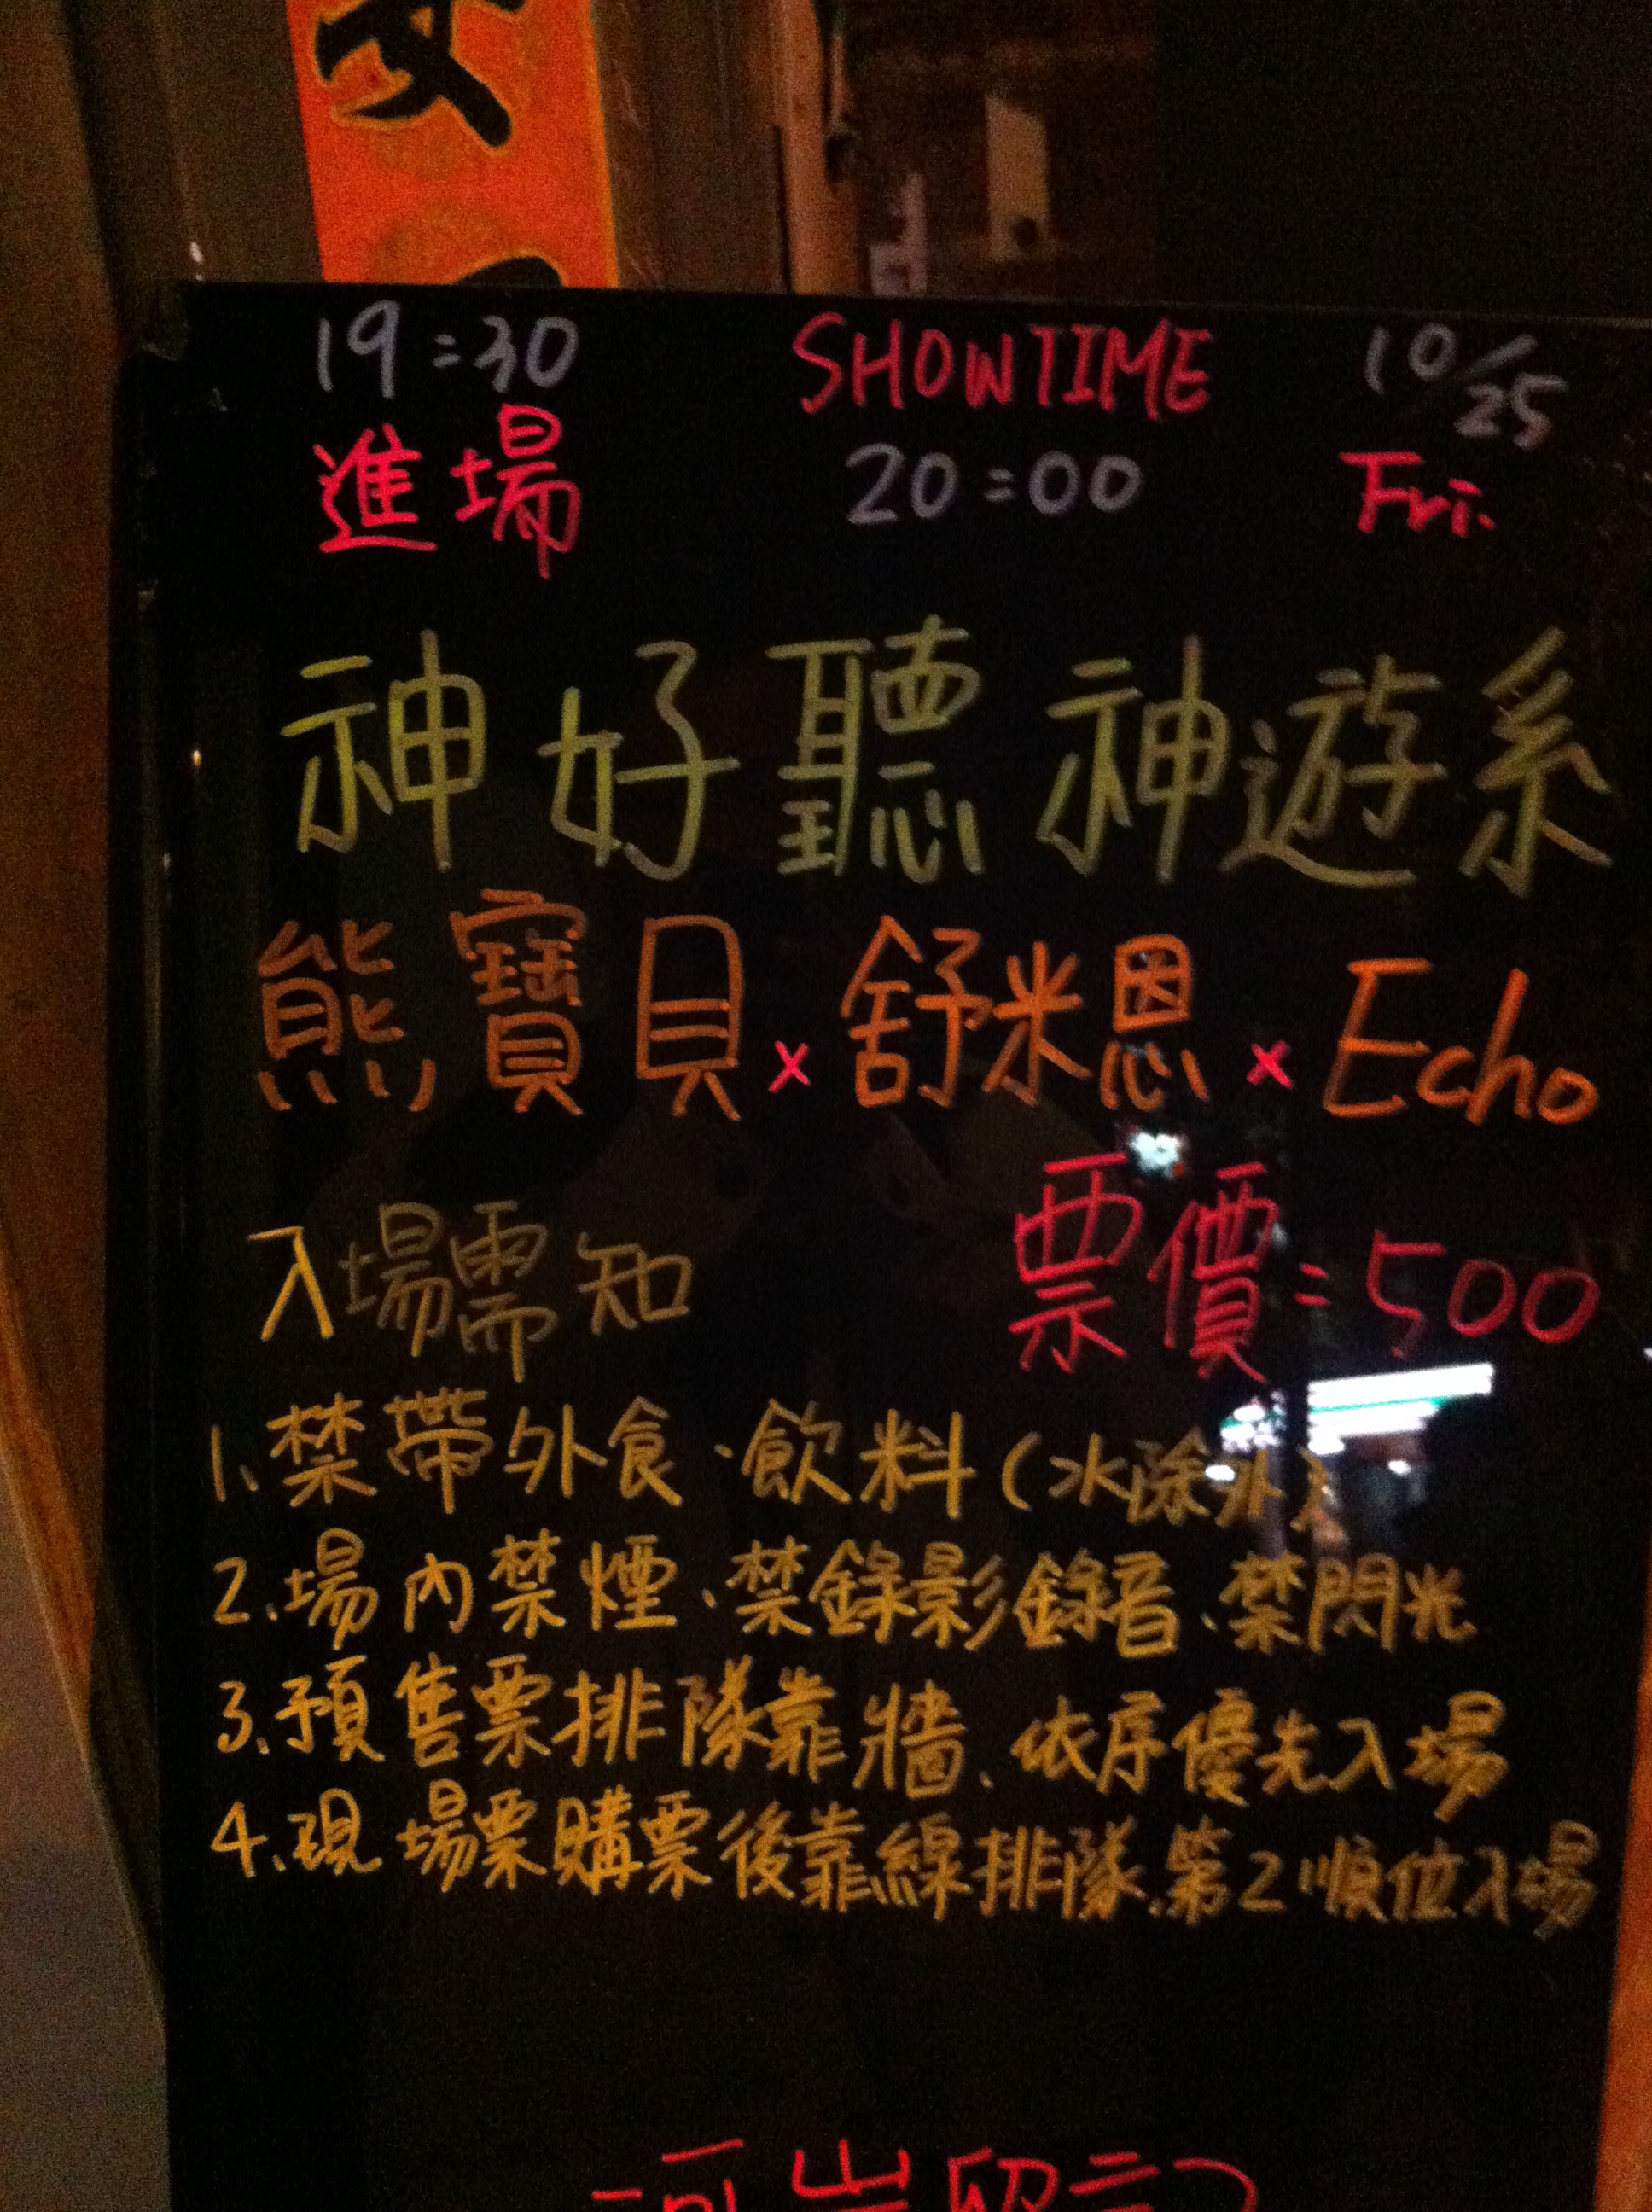 19:30 SHOWTIME 10/25
進場 20:00 Fri.
神好聽 神遊系
熊寶貝 x 舒米恩 x Echo
入場需知 票價:500
1、禁帶外食、飲料(水除外)
2.場內禁煙、禁錄影錄音、禁閃光
3.預售票排隊靠牆、依序優先入場
4.現場票購票後靠線排隊、第2順位入場
河岸留言